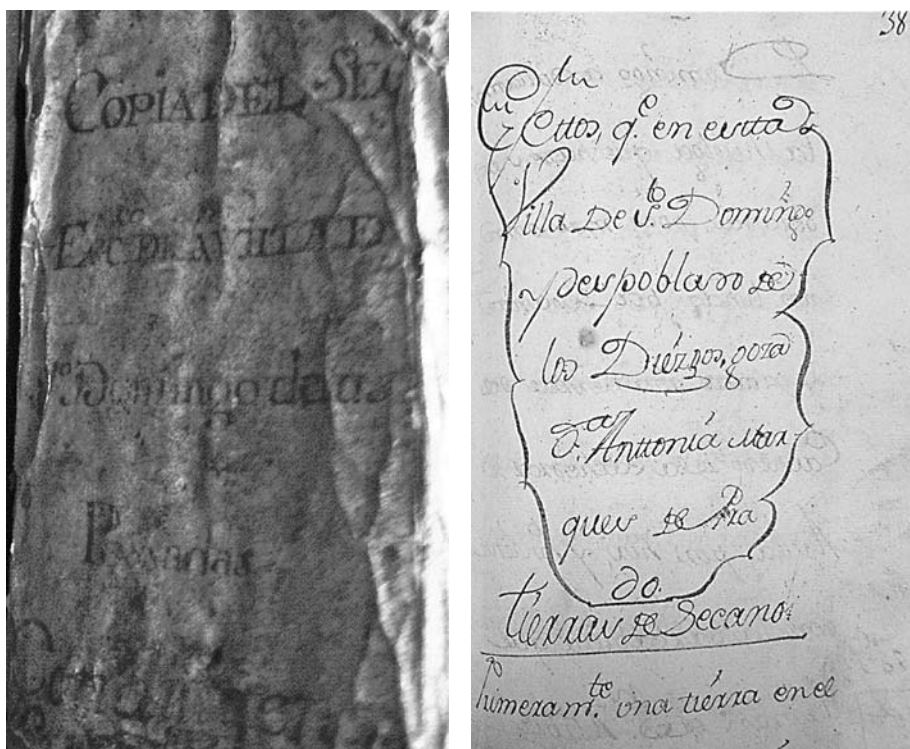 COPIA DEL SEC
DE LA VILLA D
Sto Domingo de las
Posadas
38
Ettos, q.e en estta
Villa De Sto. Domingo
y despoblado de
los Diezgos, goza
D.a Anttonia Mar-
ques de Pra
do.
tierras de Secano.
Primeram.te una tierra en el